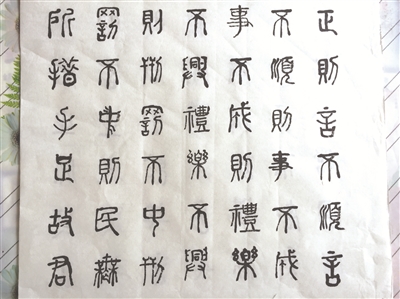 正則言不順言
不順則事不成
事不成則禮樂
不興禮樂不興
則刑罰不中刑
罰不中則民無
所措手足故君